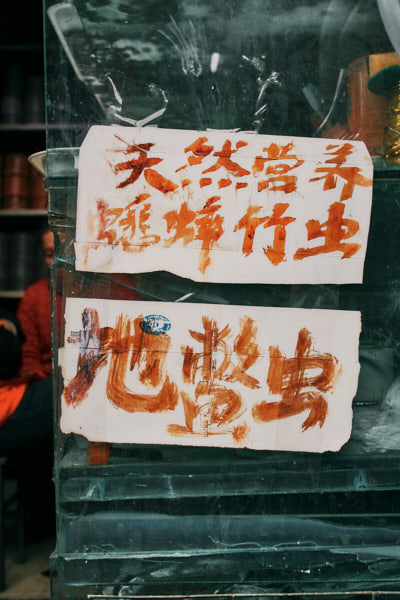 天然营养
蟋蟀竹虫
地鳖虫